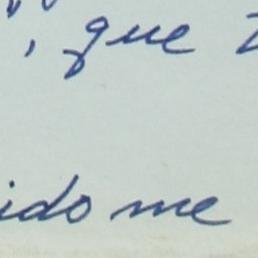 , que
ido me